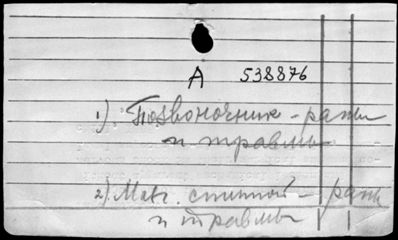 А 538876
1) Позвоночник - раны
и травмы
2) Мозг. спинной - раны
и травмы